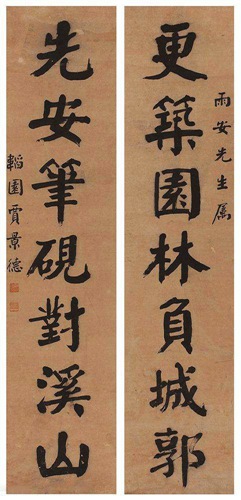 雨安先生属
更築園林負城郭
先安筆硯對溪山
韜園賈景德